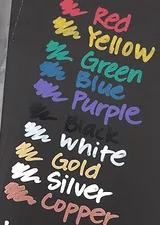 Red
Yellow
Green
Blue
Purple
Black
White
Gold
Silver
Copper